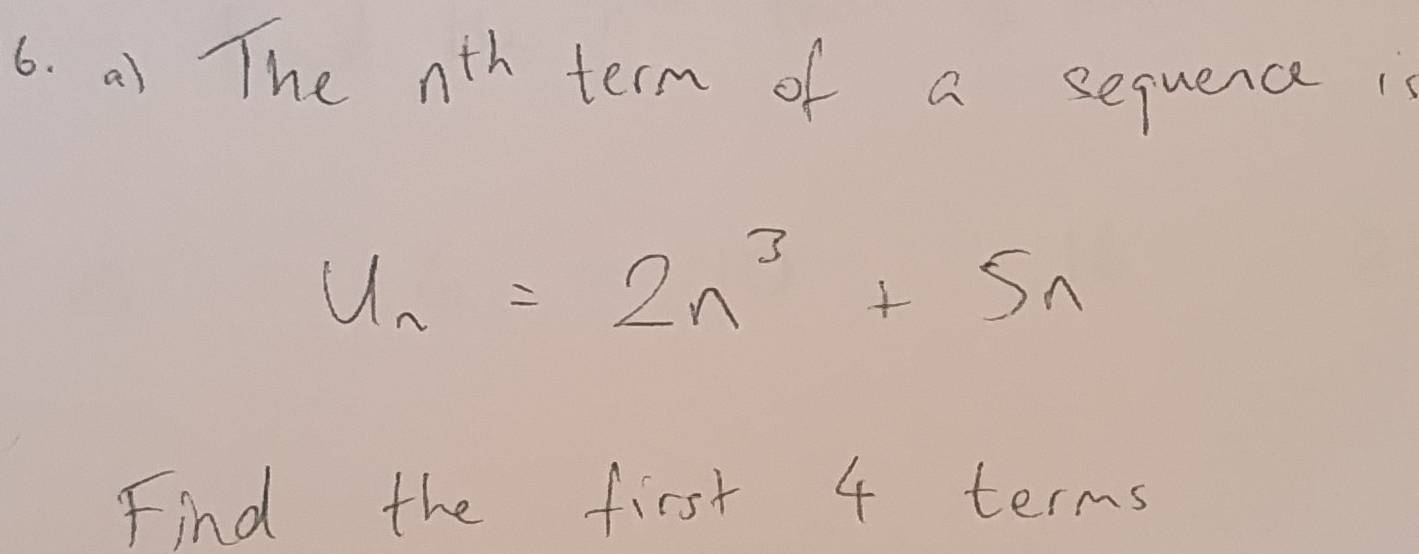 6. a) The nth term of a sequence is
Un = 2n³ + 5n
Find the first 4 terms